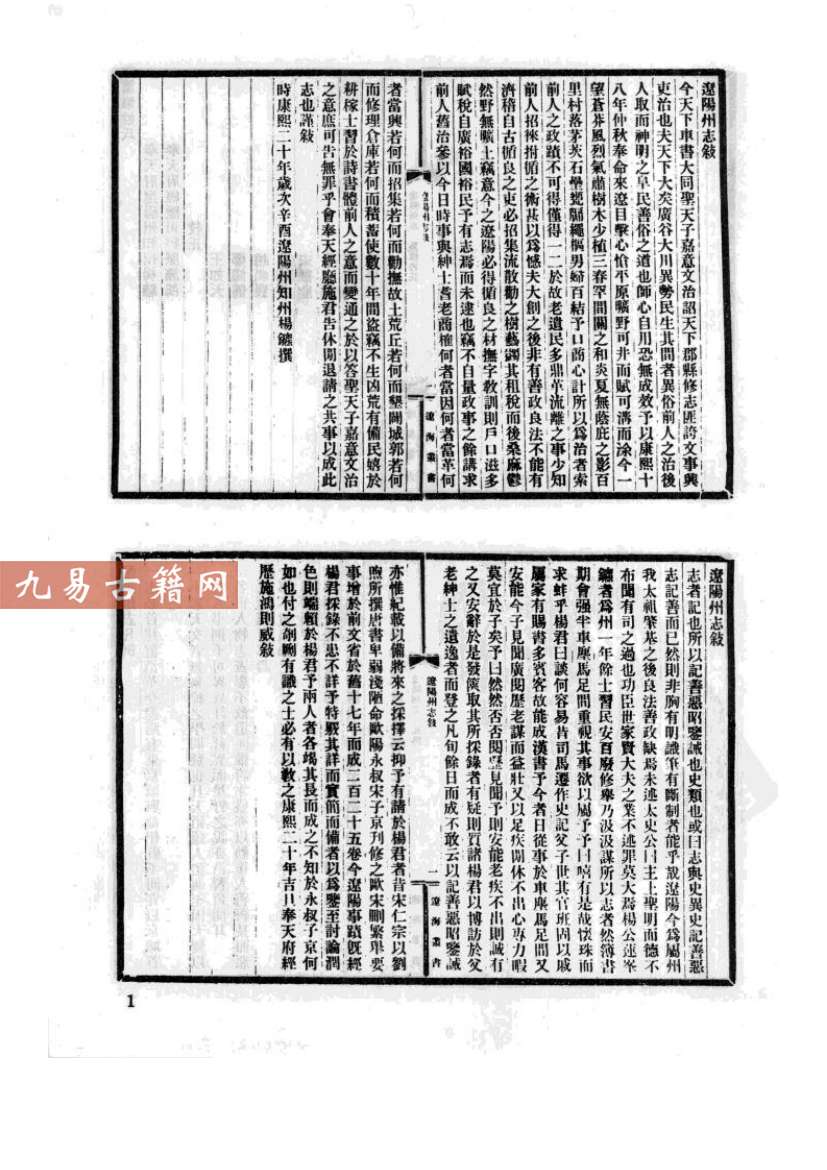 遼陽州志敍
今天下車書大同聖天子嘉意文治詔天下郡縣修志匪誇文事興
吏治也夫天下大矣廣谷大川異勢民生其間者異俗前人之治後
人取而神明之阜民善俗之道也師心自用恐無成效予以康熙十
八年仲秋奉命來遼目擊心愴平原曠野可井而賦可溝而涂今一
望蒼莽風烈氣肅樹木少植三春罕間關之和炎夏無蔭庇之影百
里村落茅茨石壘甕牖繩樞男婦百結予口商心計所以爲治者索
前人之政蹟不可得僅得一二於故老遺民多鼎革流離之事少知
前人招徠拊循之術甚以爲憾夫大創之後非有善政良法不能有
濟稽自古循良之吏必招集流散勸之樹藝蠲其租稅而後桑麻鬱
然野無曠土竊意今之遼陽必得循良之材撫字敎訓則戶口滋多
賦稅自廣裕國裕民予有志焉而未逮也竊不自量政事之餘講求
前人舊治參以今日時事與紳士耆老商榷何者當因何者當革何
遼陽州志敍
一
遼海叢書
者當興若何而招集若何而勸撫故土荒丘若何而墾闢城郭若何
而修理倉庫若何而積蓄使數十年間盜竊不生凶荒有備民嬉於
耕稼士習於詩書體前人之意而變通之於以答聖天子嘉意文治
之意庶可告無罪乎會奉天經廳施君告休閒退請之共事以成此
志也謹敍
時康熙二十年歲次辛酉遼陽州知州楊鑣撰
遼陽州志敍
志者記也所以記善惡昭鑒誡也史類也或曰志與史異史記善惡
志記善而已然則非胸有明識筆有斷制者能乎哉遼陽今爲屬州
我太祖肇基之後良法善政缺焉未述太史公曰主上聖明而德不
布聞有司之過也功臣世家賢大夫之業不述罪莫大焉楊公逕峯
鑣者爲州一年餘士習民安百廢修舉乃汲汲謀所以志者然簿書
期會强半車塵馬足間重視其事欲以屬予予曰嘻有是哉懷珠而
求蚌乎楊君曰談何容易昔司馬遷作史記父子世其官班固以戚
屬家有賜書多賓客故能成漢書予今者日從事於車塵馬足間又
安能今子見聞廣閱歷老謀而益壯又以足疾閒休不出心專力暇
莫宜於子矣予曰然然否否閱歷見聞予則安能老疾不出則誠有
之又安辭於是發篋取其所採錄者有疑則質諸楊君以博訪於父
老紳士之遺逸者而登之凡旬餘日而成不敢云以記善惡昭鑒誡
遼陽州志敍
一
遼海叢書
亦惟紀載以備將來之採擇云抑予有請於楊君者昔宋仁宗以劉
煦所撰唐書卑弱淺陋命歐陽永叔宋子京刊修之歐宋刪繁舉要
事增於前文省於舊十七年而成二百二十五卷今遼陽事蹟旣經
楊君採錄不患不詳予特覈其詳而實簡而備者以爲鑒至討論潤
色則端賴於楊君予兩人者各竭其長而成之不知於永叔子京何
如也付之剞劂有識之士必有以敎之康熙二十年吉旦奉天府經
歷施鴻則威敍
1
九易古籍网